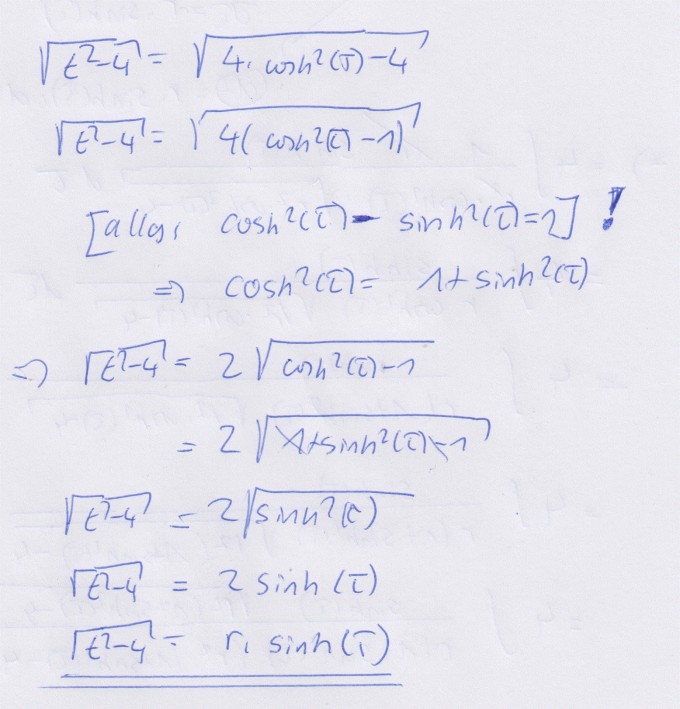 √(t²-4) = √(4·cosh²(τ)-4)
√(t²-4) = √(4(cosh²(τ)-1))
[allg: cosh²(τ) - sinh²(τ)=1] !
=> cosh²(τ) = 1+sinh²(τ)
=> √(t²-4) = 2√(cosh²(τ)-1)
= 2√(1+sinh²(τ)-1)
√(t²-4) = 2√(sinh²(τ))
√(t²-4) = 2 sinh(τ)
√(t²-4) = r· sinh(τ)